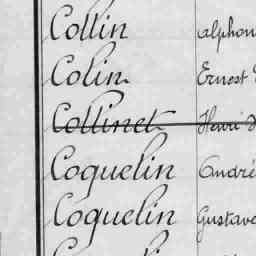 Collin
Colin Ernest
Collinet Henri
Coquelin André
Coquelin Gustave